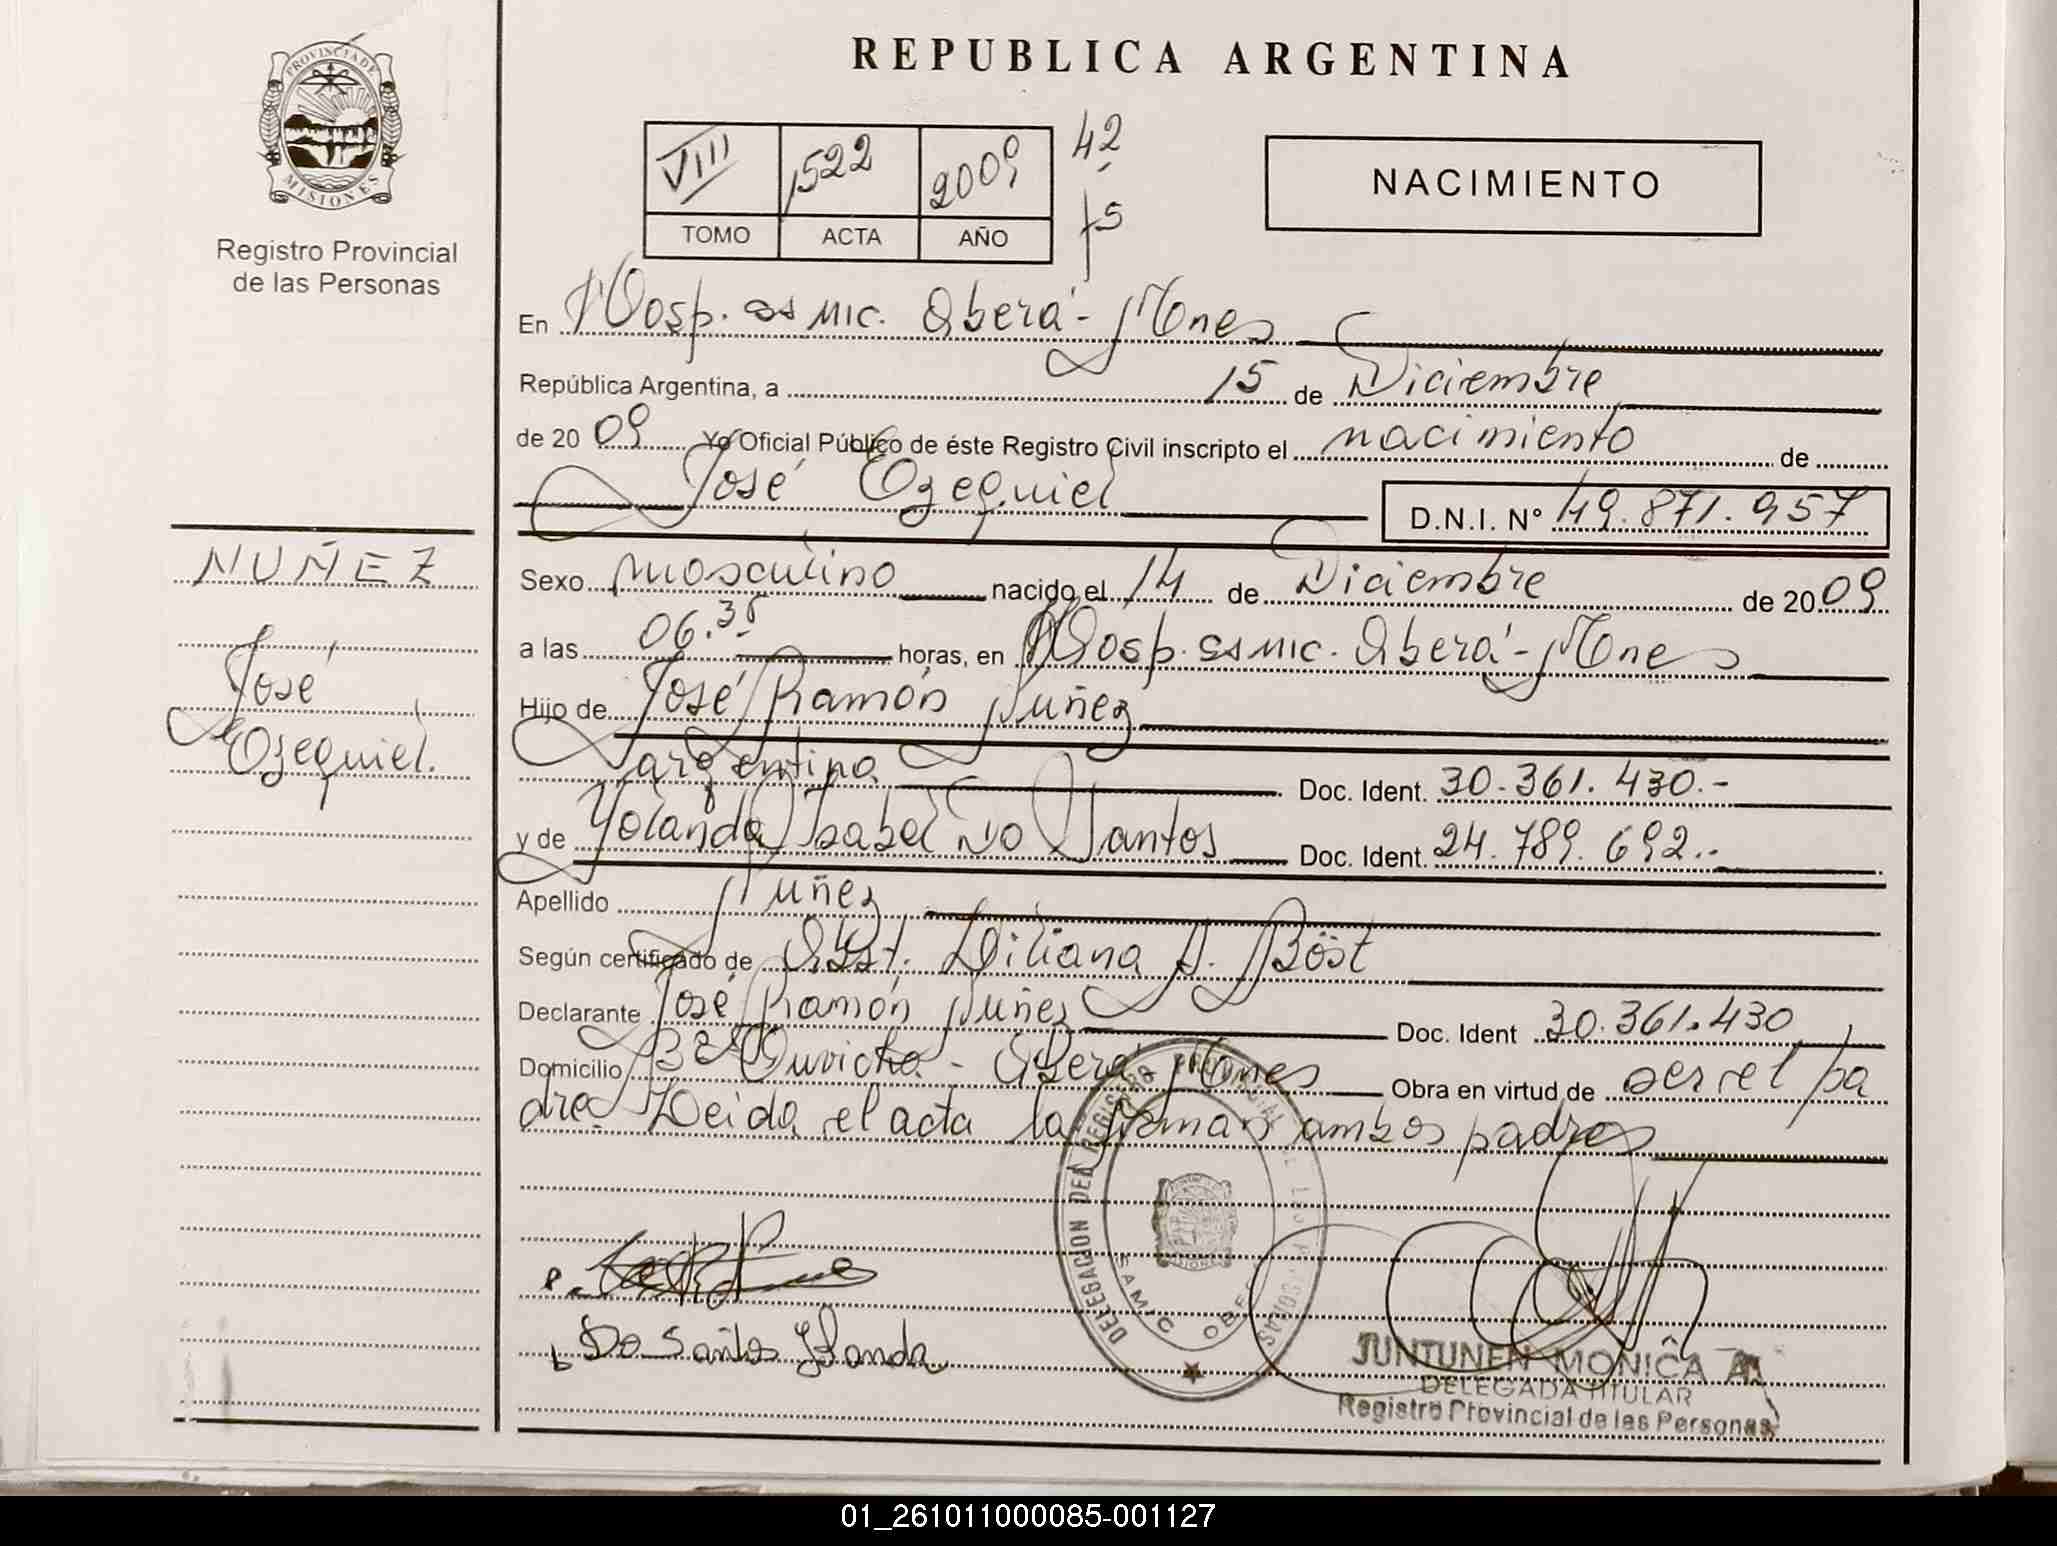 PROVINCIA DE
MISIONES
Registro Provincial
de las Personas
REPUBLICA ARGENTINA
VIII 1522 2009 42
TOMO ACTA AÑO 75
NACIMIENTO
En Hosp. SAMIC. Oberá - Mnes
República Argentina, a 15 de Diciembre
de 2009 Yo Oficial Público de éste Registro Civil inscripto el nacimiento de
José Ezequiel D.N.I. N° 49.871.957
NUÑEZ
José
Ezequiel.
Sexo masculino nacido el 14 de Diciembre de 2009
a las 06.35 horas, en Hosp. SAMIC. Oberá - Mnes
Hijo de José Ramón Nuñez
argentino Doc. Ident. 30.361.430.-
y de Yolanda Isabel Do Santos Doc. Ident. 24.789.692.-
Apellido Nuñez
Según certificado de Obst. Liliana A. Böst
Declarante José Ramón Nuñez Doc. Ident 30.361.430
Domicilio Bº - Oberá - Mnes Obra en virtud de ser el pa
dre. Leida el acta la firman ambos padres
DELEGACION DEL REGISTRO PROVINCIAL DE LAS PERSONAS
SAMIC OBERA
Do Santos Yolanda
JUNTUNEN MONICA A.
DELEGADA TITULAR
Registro Provincial de las Personas
01_261011000085-001127